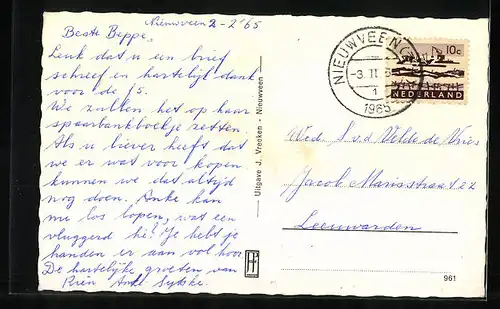 Nieuwveen 2-2-'65
Beste Beppe,
Leuk dat u een brief
schreef en hartelijk dank
voor de f5.
We zullen het op haar
spaarbankboekje zetten.
Als u liever heeft dat
we er wat voor kopen
kunnen we dat altijd
nog doen. Anke kan
nu los lopen, wat een
vluggerd hi? Je hebt je
handen er aan vol hoor.
De hartelijke groeten van
Rien Anke Sytske.
Uitgave J. Vreeken - Nieuwveen
NIEUWVEEN (Z
-3. II. 6
1
1965
10c
NEDERLAND
Wed. S. v.d. Velde de Vries
Jacob Marisstraat 22
Leeuwarden
961